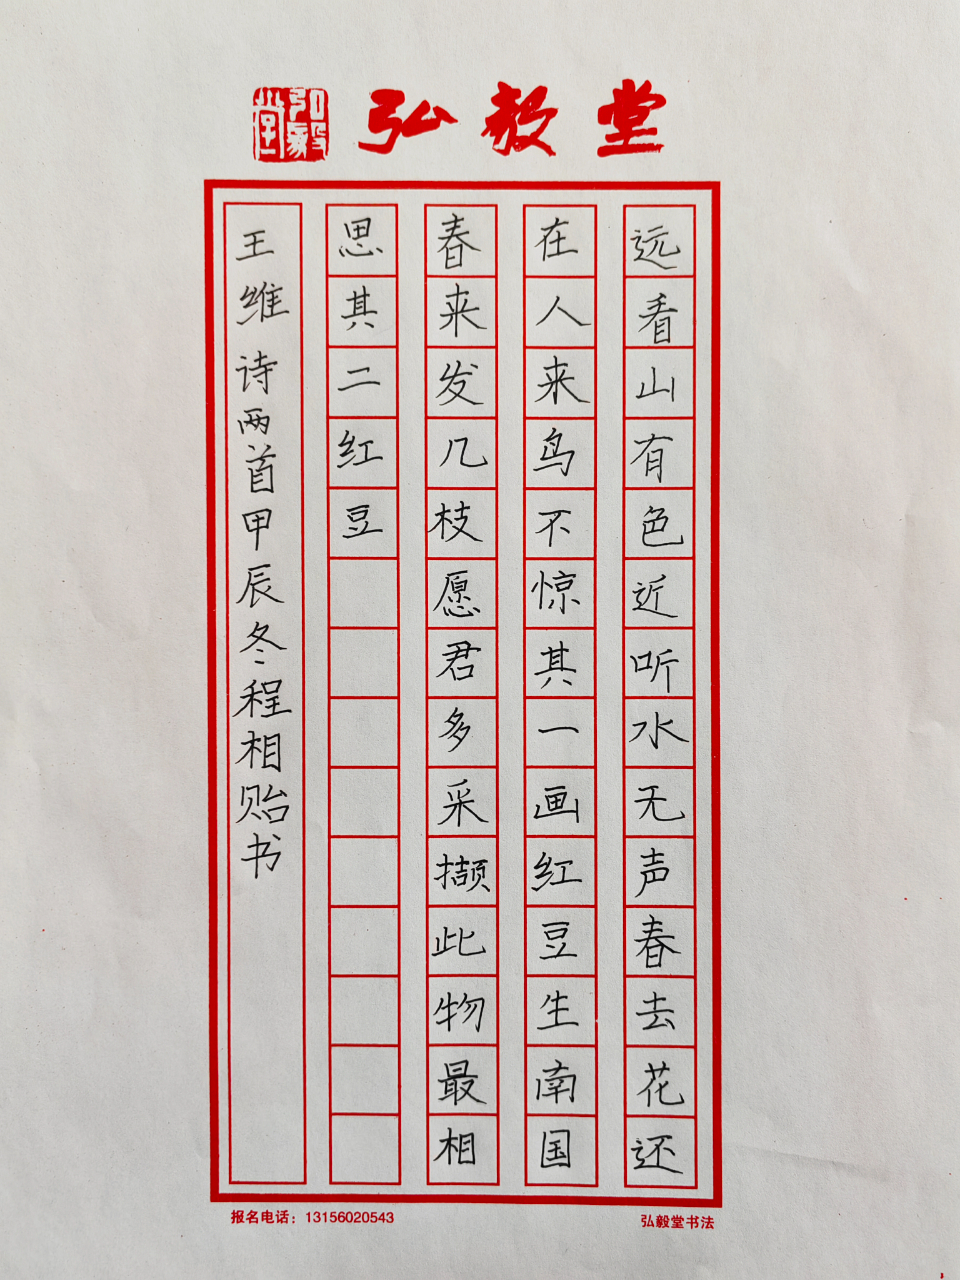 弘毅堂
弘毅堂
远看山有色近听水无声春去花还
在人来鸟不惊其一画红豆生南国
春来发几枝愿君多采撷此物最相
思其二红豆
王维诗两首甲辰冬程相贻书
报名电话：13156020543
弘毅堂书法